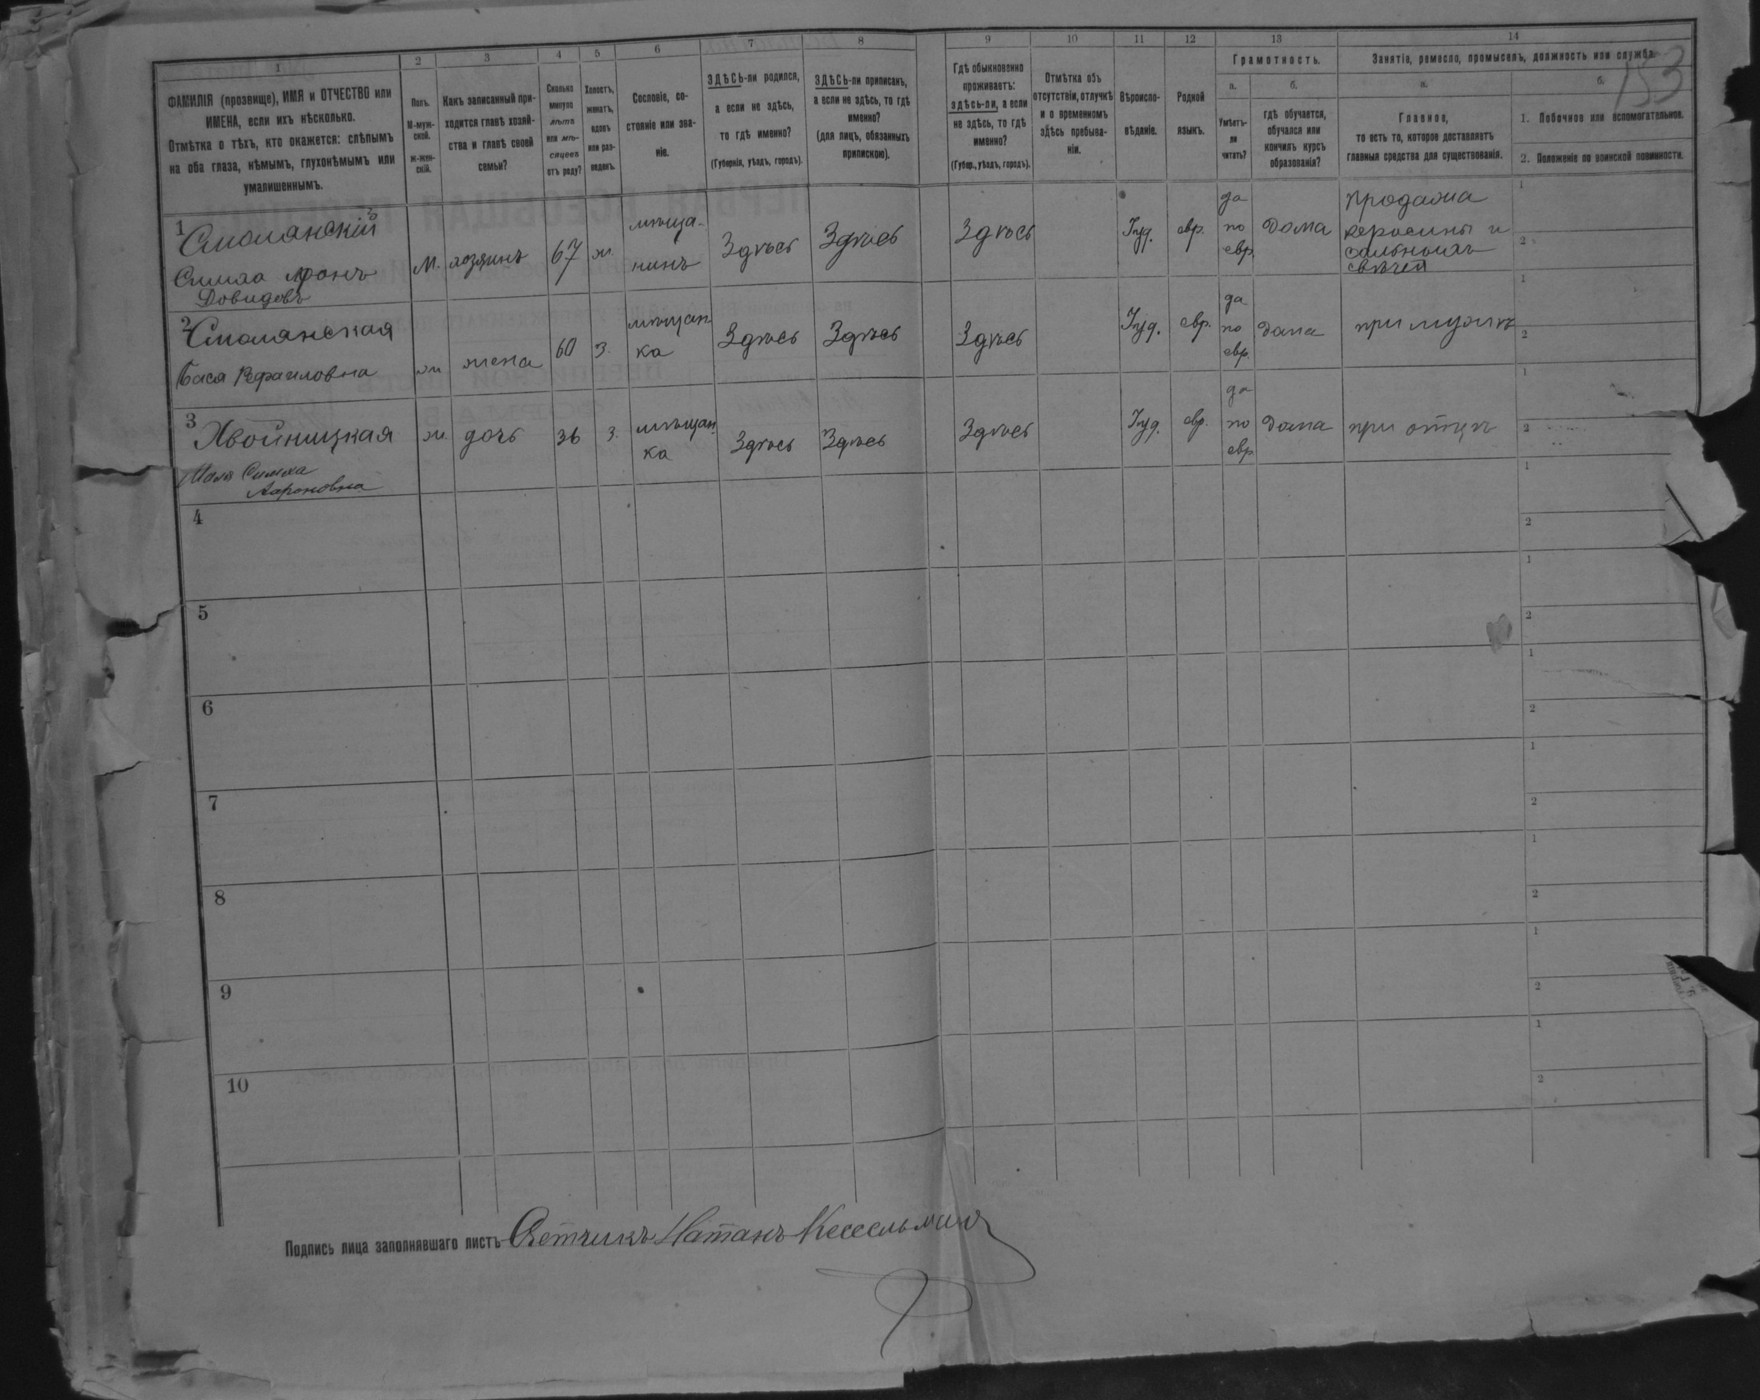 153
1 2 3 4 5 6 7 8 9 10 11 12 13 14
ФАМИЛІЯ (прозвище), ИМЯ и ОТЧЕСТВО или
ИМЕНА, если ихъ нѣсколько.
Отмѣтка о тѣхъ, кто окажется: слѣпымъ
на оба глаза, нѣмымъ, глухонѣмымъ или
умалишеннымъ.
Полъ.
М-муж-
ской.
ж-жен-
скій.
Какъ записанный при-
ходится главѣ хозяй-
ства и главѣ своей
семьи?
Сколько
минуло
лѣтъ
или мѣ-
сяцевъ
отъ роду?
Холостъ,
женатъ,
вдовъ
или раз-
веденъ.
Сословіе, со-
стояніе или зва-
ніе.
ЗДѢСЬ-ли родился,
а если не здѣсь,
то гдѣ именно?
(Губернія, уѣздъ, городъ).
ЗДѢСЬ-ли приписанъ,
а если не здѣсь, то гдѣ
именно?
(для лицъ, обязанныхъ
припискою).
Гдѣ обыкновенно
проживаетъ:
здѣсь-ли, а если
не здѣсь, то гдѣ
именно?
(Губер., уѣздъ, городъ).
Отмѣтка объ
отсутствіи, отлучкѣ
и о временномъ
здѣсь пребыва-
ніи.
Вѣроиспо-
вѣданіе.
Родной
языкъ.
Грамотность.
а.
Умѣетъ-
ли
читать?
б.
гдѣ обучается,
обучался или
кончилъ курсъ
образованія?
Занятіе, ремесло, промыселъ, должность или служба.
а.
Главное,
то есть то, которое доставляетъ
главныя средства для существованія.
б.
1. Побочное или вспомогательное.
2. Положеніе по воинской повинности.
1
Смолянскій
Симха Аронъ
Довидовъ
М.
хозяинъ
67
ж.
мѣща-
нинъ
Здѣсь
Здѣсь
Здѣсь
Іуд.
евр.
да
по
евр.
дома
продажа
керосины и
сальныхъ
свѣчей
1
2
2
Смолянская
Бася Рефаиловна
ж
жена
60
З.
мѣщан-
ка
Здѣсь
Здѣсь
Здѣсь
Іуд.
евр.
да
по
евр.
дома
при мужѣ
1
2
3
Хвойницкая
Маля Симха
Аароновна
ж.
дочь
36
З.
мѣщан-
ка
Здѣсь
Здѣсь
Здѣсь
Іуд.
евр.
да
по
евр.
дома
при отцѣ
1
2
4
1
2
5
1
2
6
1
2
7
1
2
8
1
2
9
1
2
10
1
2
Подпись лица заполнявшаго листъ Счетчикъ Натанъ Кесельманъ